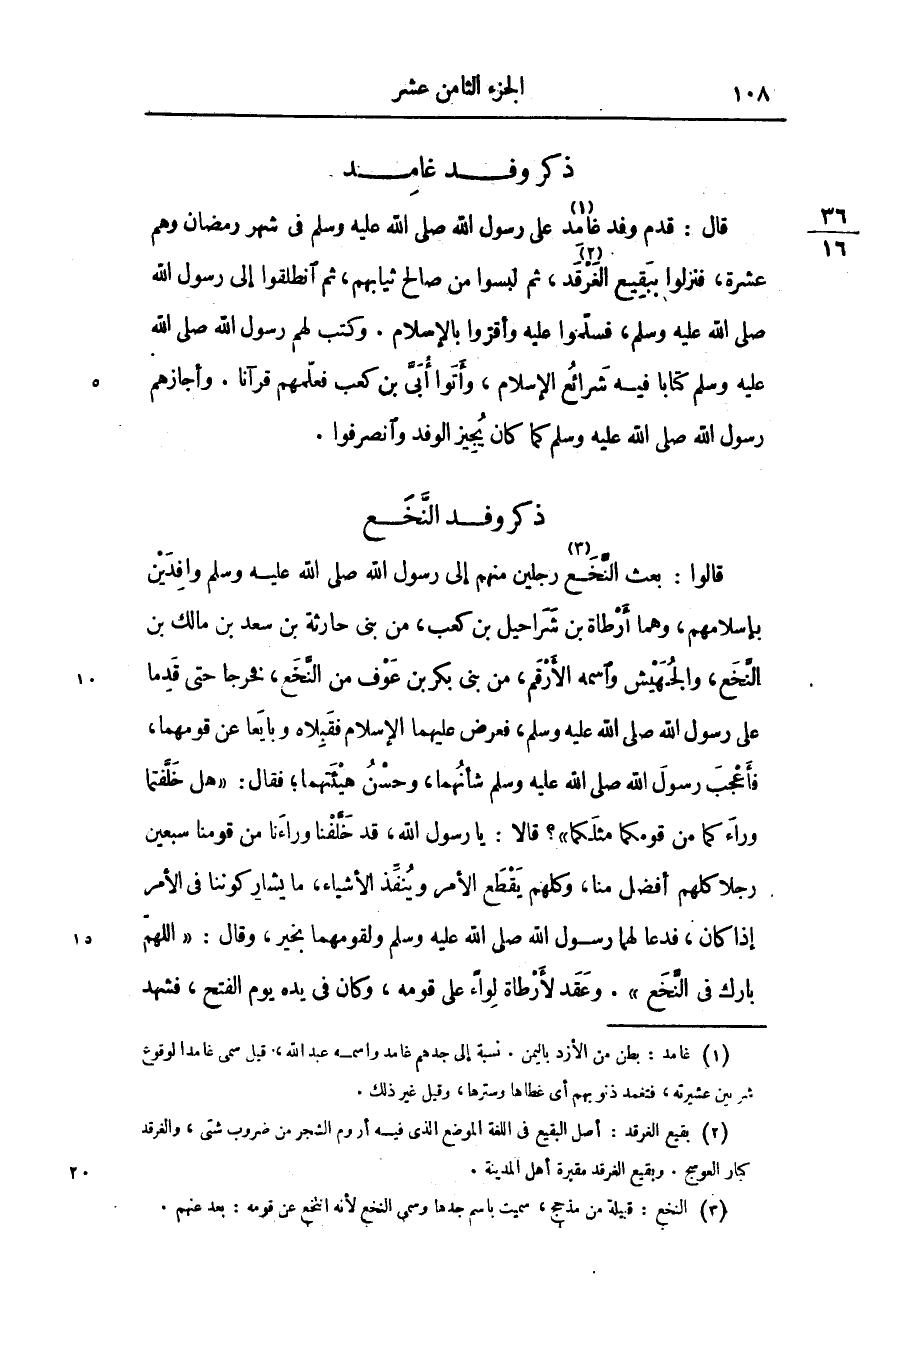 ١٠٨ الجزء الثامن عشر
ذكر وفــد غامِــد
٣٦
١٦
قال : قدم وفد غامد (١) على رسول الله صلى الله عليه وسلم فى شهر رمضان وهم
عشرة، فنزلوا ببَقِيع الغَرْقَد (٢) ، ثم لبسوا من صالح ثيابهم، ثم ٱنطلقوا إلى رسول الله
صلى الله عليه وسلم، فسلّموا عليه وأقرّوا بالإسلام . وكتب لهم رسول الله صلى الله
عليه وسلم كتابا فيــه شَرائع الإسلام ، وأَتَوا أُبَىّ بن كعب فعلّمهم قرآنا . وأجازهم
٥
رسول الله صلى الله عليه وسلم كما كان يُجِيز الوفد وٱنصرفوا .
ذكر وفــد النَّخَــع
قالوا : بعث النَّخَــع (٣) رجلين منهم إلى رسول الله صلى الله عليــه وسلم وافِدَيْن
بإسلامهم، وهما أَرْطاة بن شَرَاحيل بن كعب، من بنى حارثة بن سعد بن مالك بن
النَّخَع، والجُهَيْش وٱسمه الأَرْقَم، من بنى بكر بن عَوْف من النَّخَع، فخرجا حتى قَدِما
١٠
على رسول الله صلى الله عليه وسلم، فعرض عليهما الإسلام فقَبِلاه وبايَعا عن قومهما،
فأَعْجبَ رسولَ الله صلى الله عليه وسلم شأنُهما، وحسْنُ هيْئَتهما؛ فقال: «هل خَلَّفتما
وراءكما من قومكما مثلَكما»؟ قالا : يا رسول الله، قد خَلَّفْنا وراءَنا من قومنا سبعين
رجلا كلهم أفضل منا، وكلهم يَقْطَع الأمر ويُنفِّذ الأشياء، ما يشاركوننا فى الأمر
إذا كان ، فدعا لهما رســول الله صلى الله عليه وسلم ولقومهما بخير ، وقال : « اللهمّ
١٥
بارك فى النَّخَع » . وعَقَد لأَرْطاة لِواءً على قومه ، وكان فى يده يوم الفتح ، فشهد
(١) غامد : بطن من الأزد باليمن . نسبة إلى جدهم غامد واسمــه عبد الله ، قيل سمى غامدا لوقوع
شر بين عشيرته ، فتغمد ذنوبهم أى غطاها وسترها ، وقيل غير ذلك .
(٢) بقيع الغرقد : أصل البقيع فى اللغة الموضع الذى فيــه أروم الشجر من ضروب شتى ، والغرقد
كبار العوسج . وبقيع الغرقد مقبرة أهل المدينة .
٢٠
(٣) النخع : قبيلة من مذحج ، سميت باسم جدها وسمى النخع لأنه انتخع عن قومه : بعد عنهم .